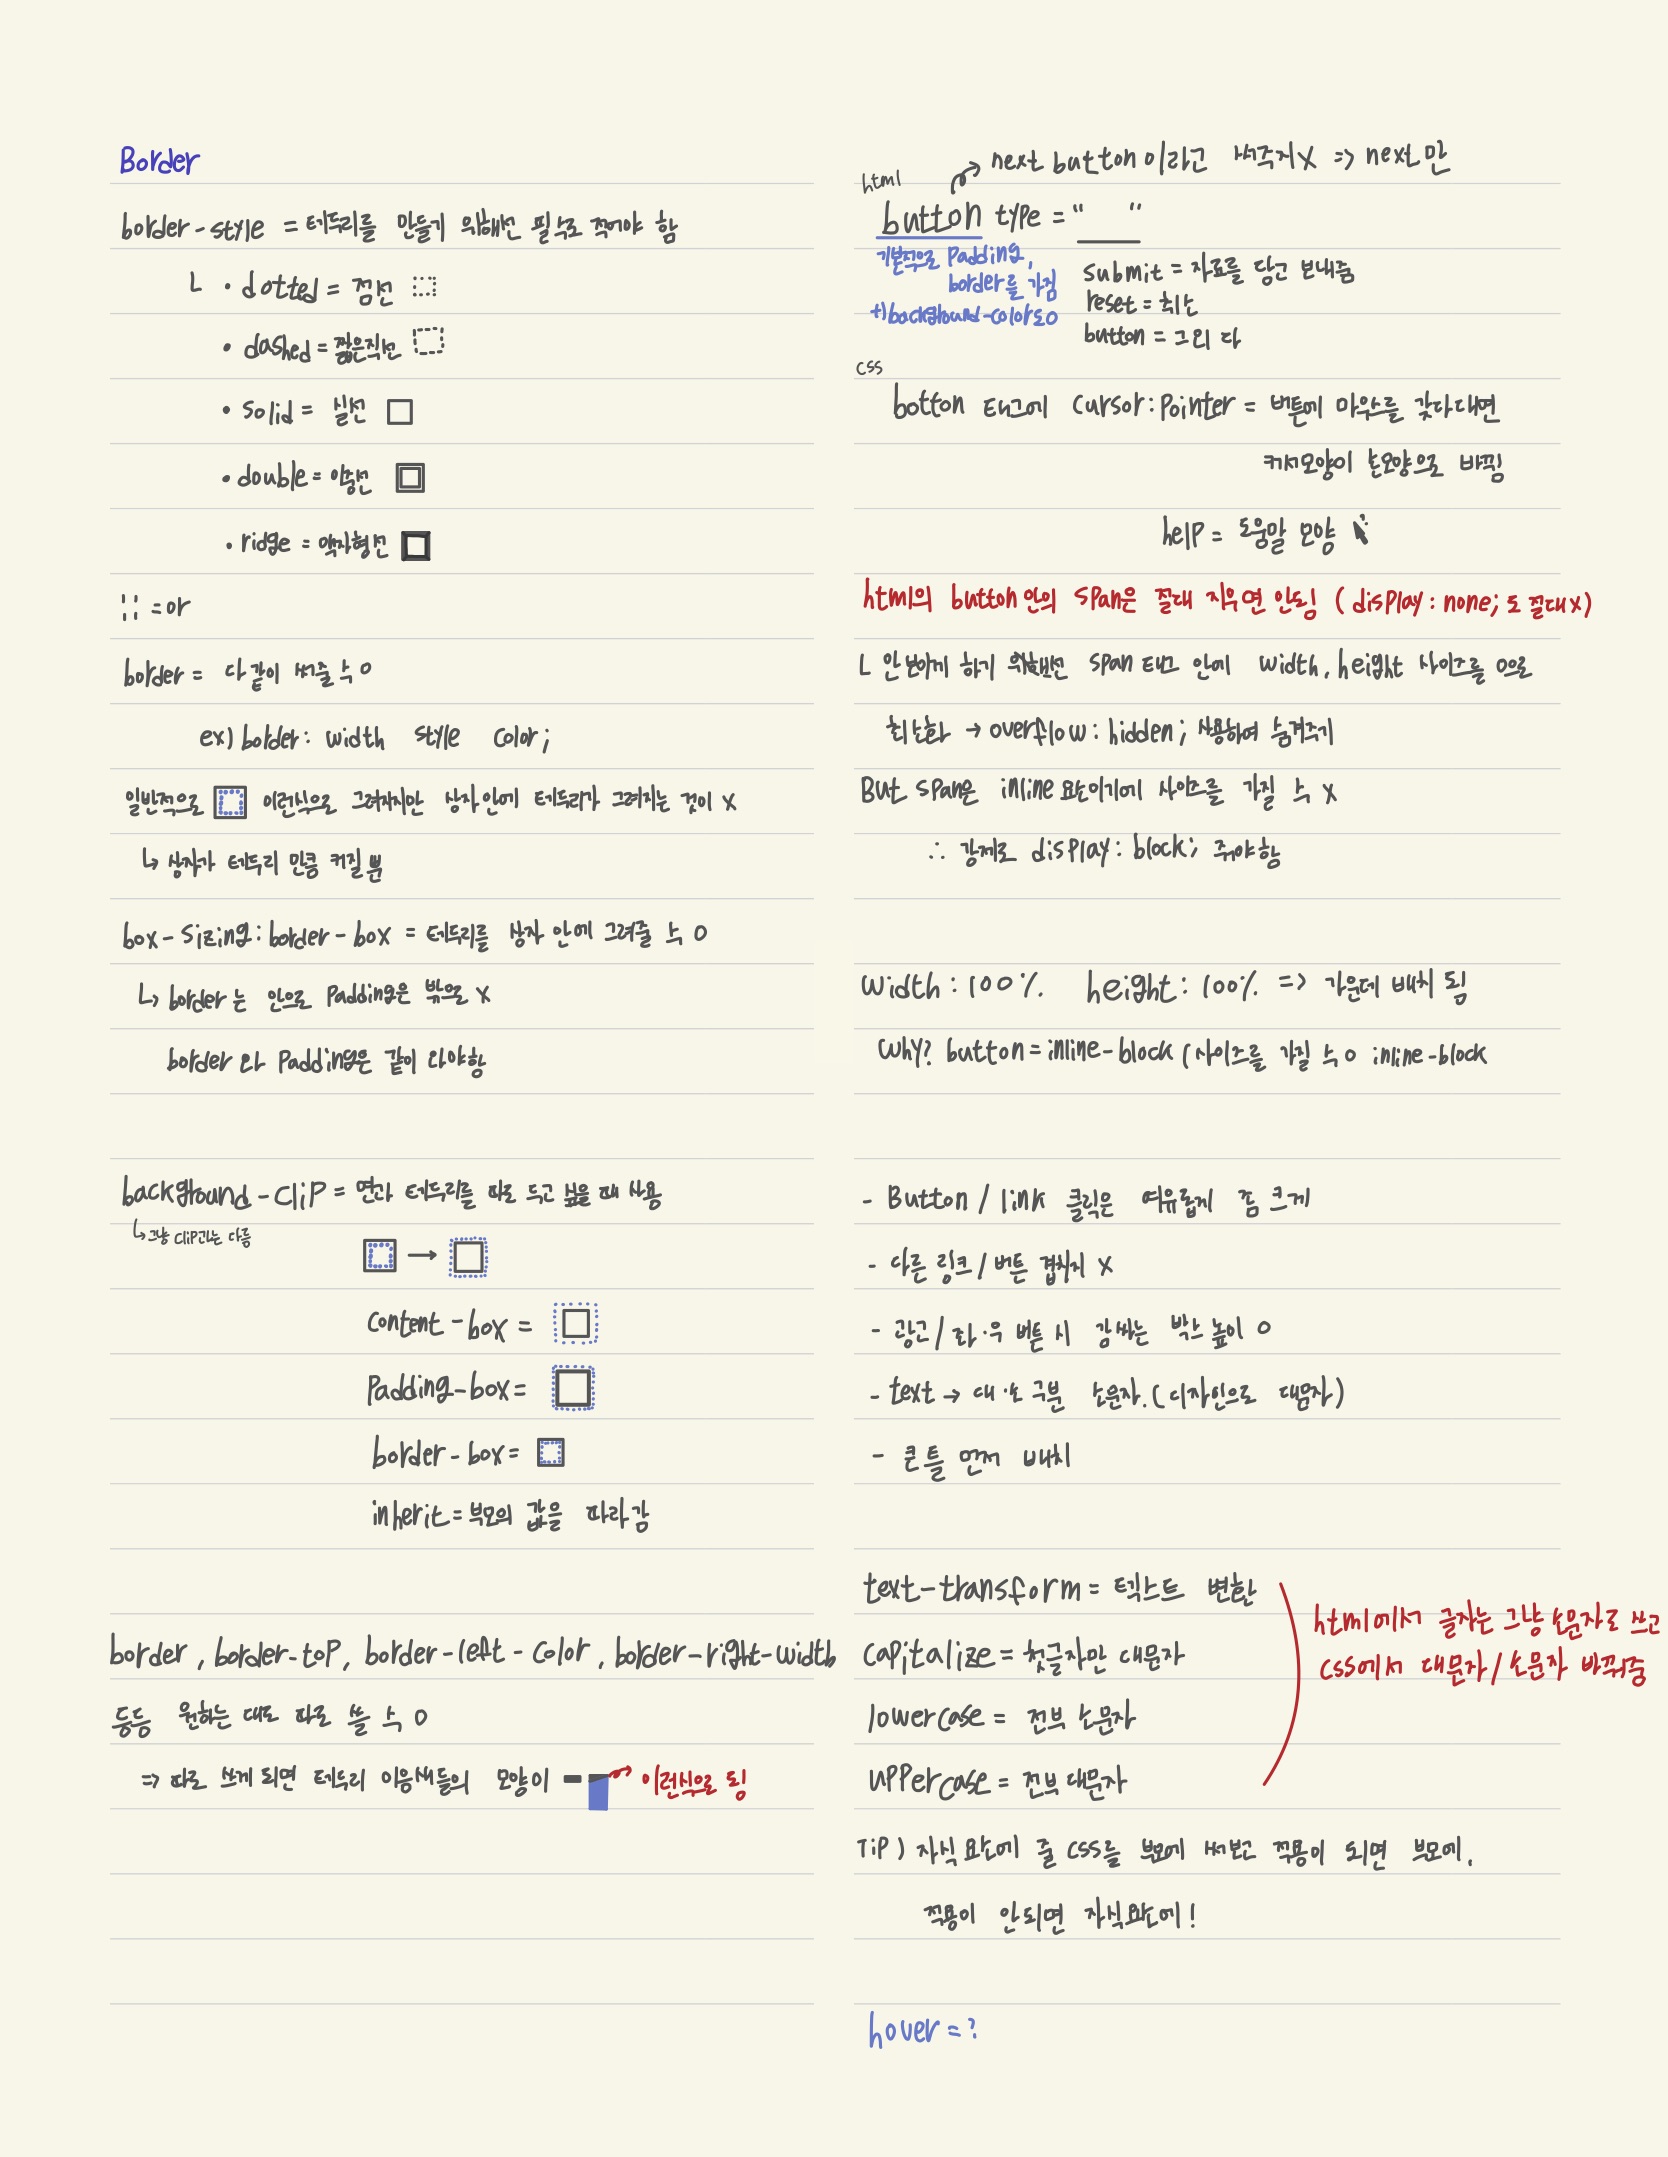 Border
border-style = 테두리를 만들기 위해선 필수로 적어야 함
ㄴ • dotted = 점선
• dashed = 짧은직선
• solid = 실선
• double = 이중선
• ridge = 액자형선
¦¦ = or
border = 다 같이 써줄 수 O
ex) border: width style color;
일반적으로 이런식으로 그려지지만 상자안에 테두리가 그려지는 것이 X
↳ 상자가 테두리 만큼 커질 뿐
box-sizing: border-box = 테두리를 상자 안에 그려줄 수 O
↳ border는 안으로 padding은 밖으로 X
border와 padding은 같이 다야함
background-clip = 면과 테두리를 따로 두고 싶을 때 사용
↳ 그냥 clip과는 다름
→
content-box =
padding-box =
border-box =
inherit = 부모의 값을 따라감
border, border-top, border-left-color, border-right-width
등등 원하는 대로 따로 쓸 수 O
=> 따로 쓰게 되면 테두리 이음새들의 모양이 이런식으로 됨
next button이라고 써주지X => next만
html
button type = " "
기본적으로 padding,
border를 가짐
+) background-color도 O
submit = 자료를 담고 보내줌
reset = 취소
button = 그외 다
css
botton 태그에 cursor: pointer = 버튼에 마우스를 갖다대면
커서모양이 손모양으로 바뀜
help = 도움말 모양
html의 button안의 span은 절대 지우면 안됨 (display: none; 도 절대X)
ㄴ 안보이게 하기 위해선 span태그 안에 width, height 사이즈를 0으로
최소화 → overflow: hidden; 사용하여 숨겨주기
But span은 inline요소이기에 사이즈를 가질 수 X
∴ 강제로 display: block; 줘야함
width: 100% height: 100% => 가운데 배치 됨
why? button = inline-block (사이즈를 가질 수 O inline-block
- Button / link 클릭은 여유롭게 좀 크게
- 다른 링크 / 버튼 겹치지 X
- 광고 / 좌·우 버튼 시 감싸는 박스 높이 O
- text → 대·소 구분 소문자. (디자인으로 대문자)
- 큰 틀 먼저 배치
text-transform = 텍스트 변환
capitalize = 첫글자만 대문자
lowercase = 전부 소문자
uppercase = 전부 대문자
html에서 글자는 그냥 소문자로 쓰고
css에서 대문자/소문자 바꿔줌
Tip) 자식 요소에 줄 css를 부모에 써보고 적용이 되면 부모에,
적용이 안되면 자식요소에!
hover = ?